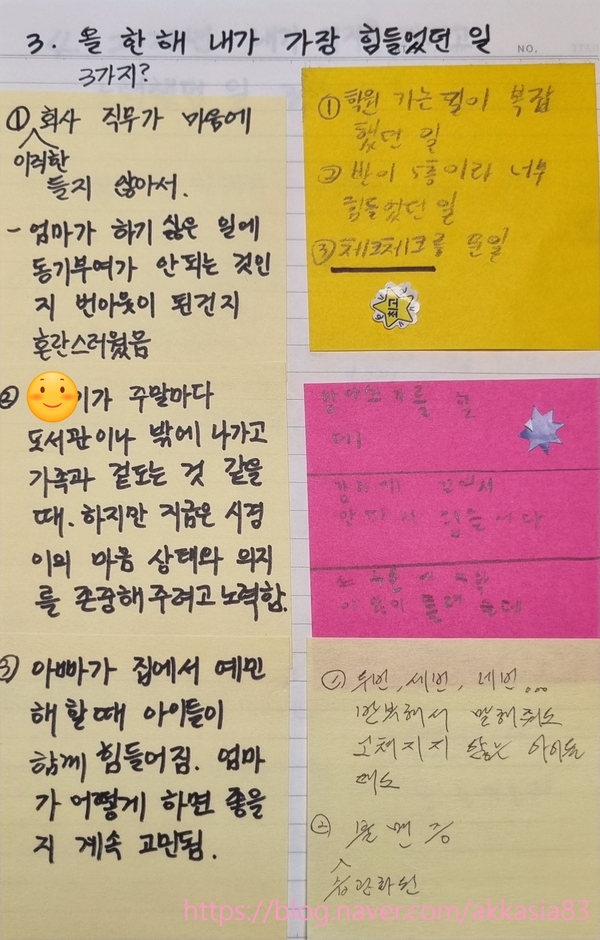 3. 올 한해 내가 가장 힘들었던 일
NO.
3가지?
① 회사 직무가 마음에
이러한
들지 않아서.
- 엄마가 하기 싫은 일에
동기부여가 안되는 것인
지 번아웃이 된건지
혼란스러웠음
② 이가 주말마다
도서관이나 밖에 나가고
가족과 겉도는 것 같을
때. 하지만 지금은 시경
이의 마음 상태와 의지
를 존중해 주려고 노력함.
③ 아빠가 집에서 예민
해 할때 아이들이
함께 힘들어짐. 엄마
가 어떻게 하면 좋을
지 계속 고민됨.
① 학원 가는 길이 복잡
했던 일
② 반이 5층이라 너무
힘들었던 일
③ 체크체크를 푼일
최고
① 두번, 세번, 네번...
반복해서 말해줘도
고쳐지지 않는 아이들
태도
② 불면증
습관화된
https://blog.naver.com/akkasia83